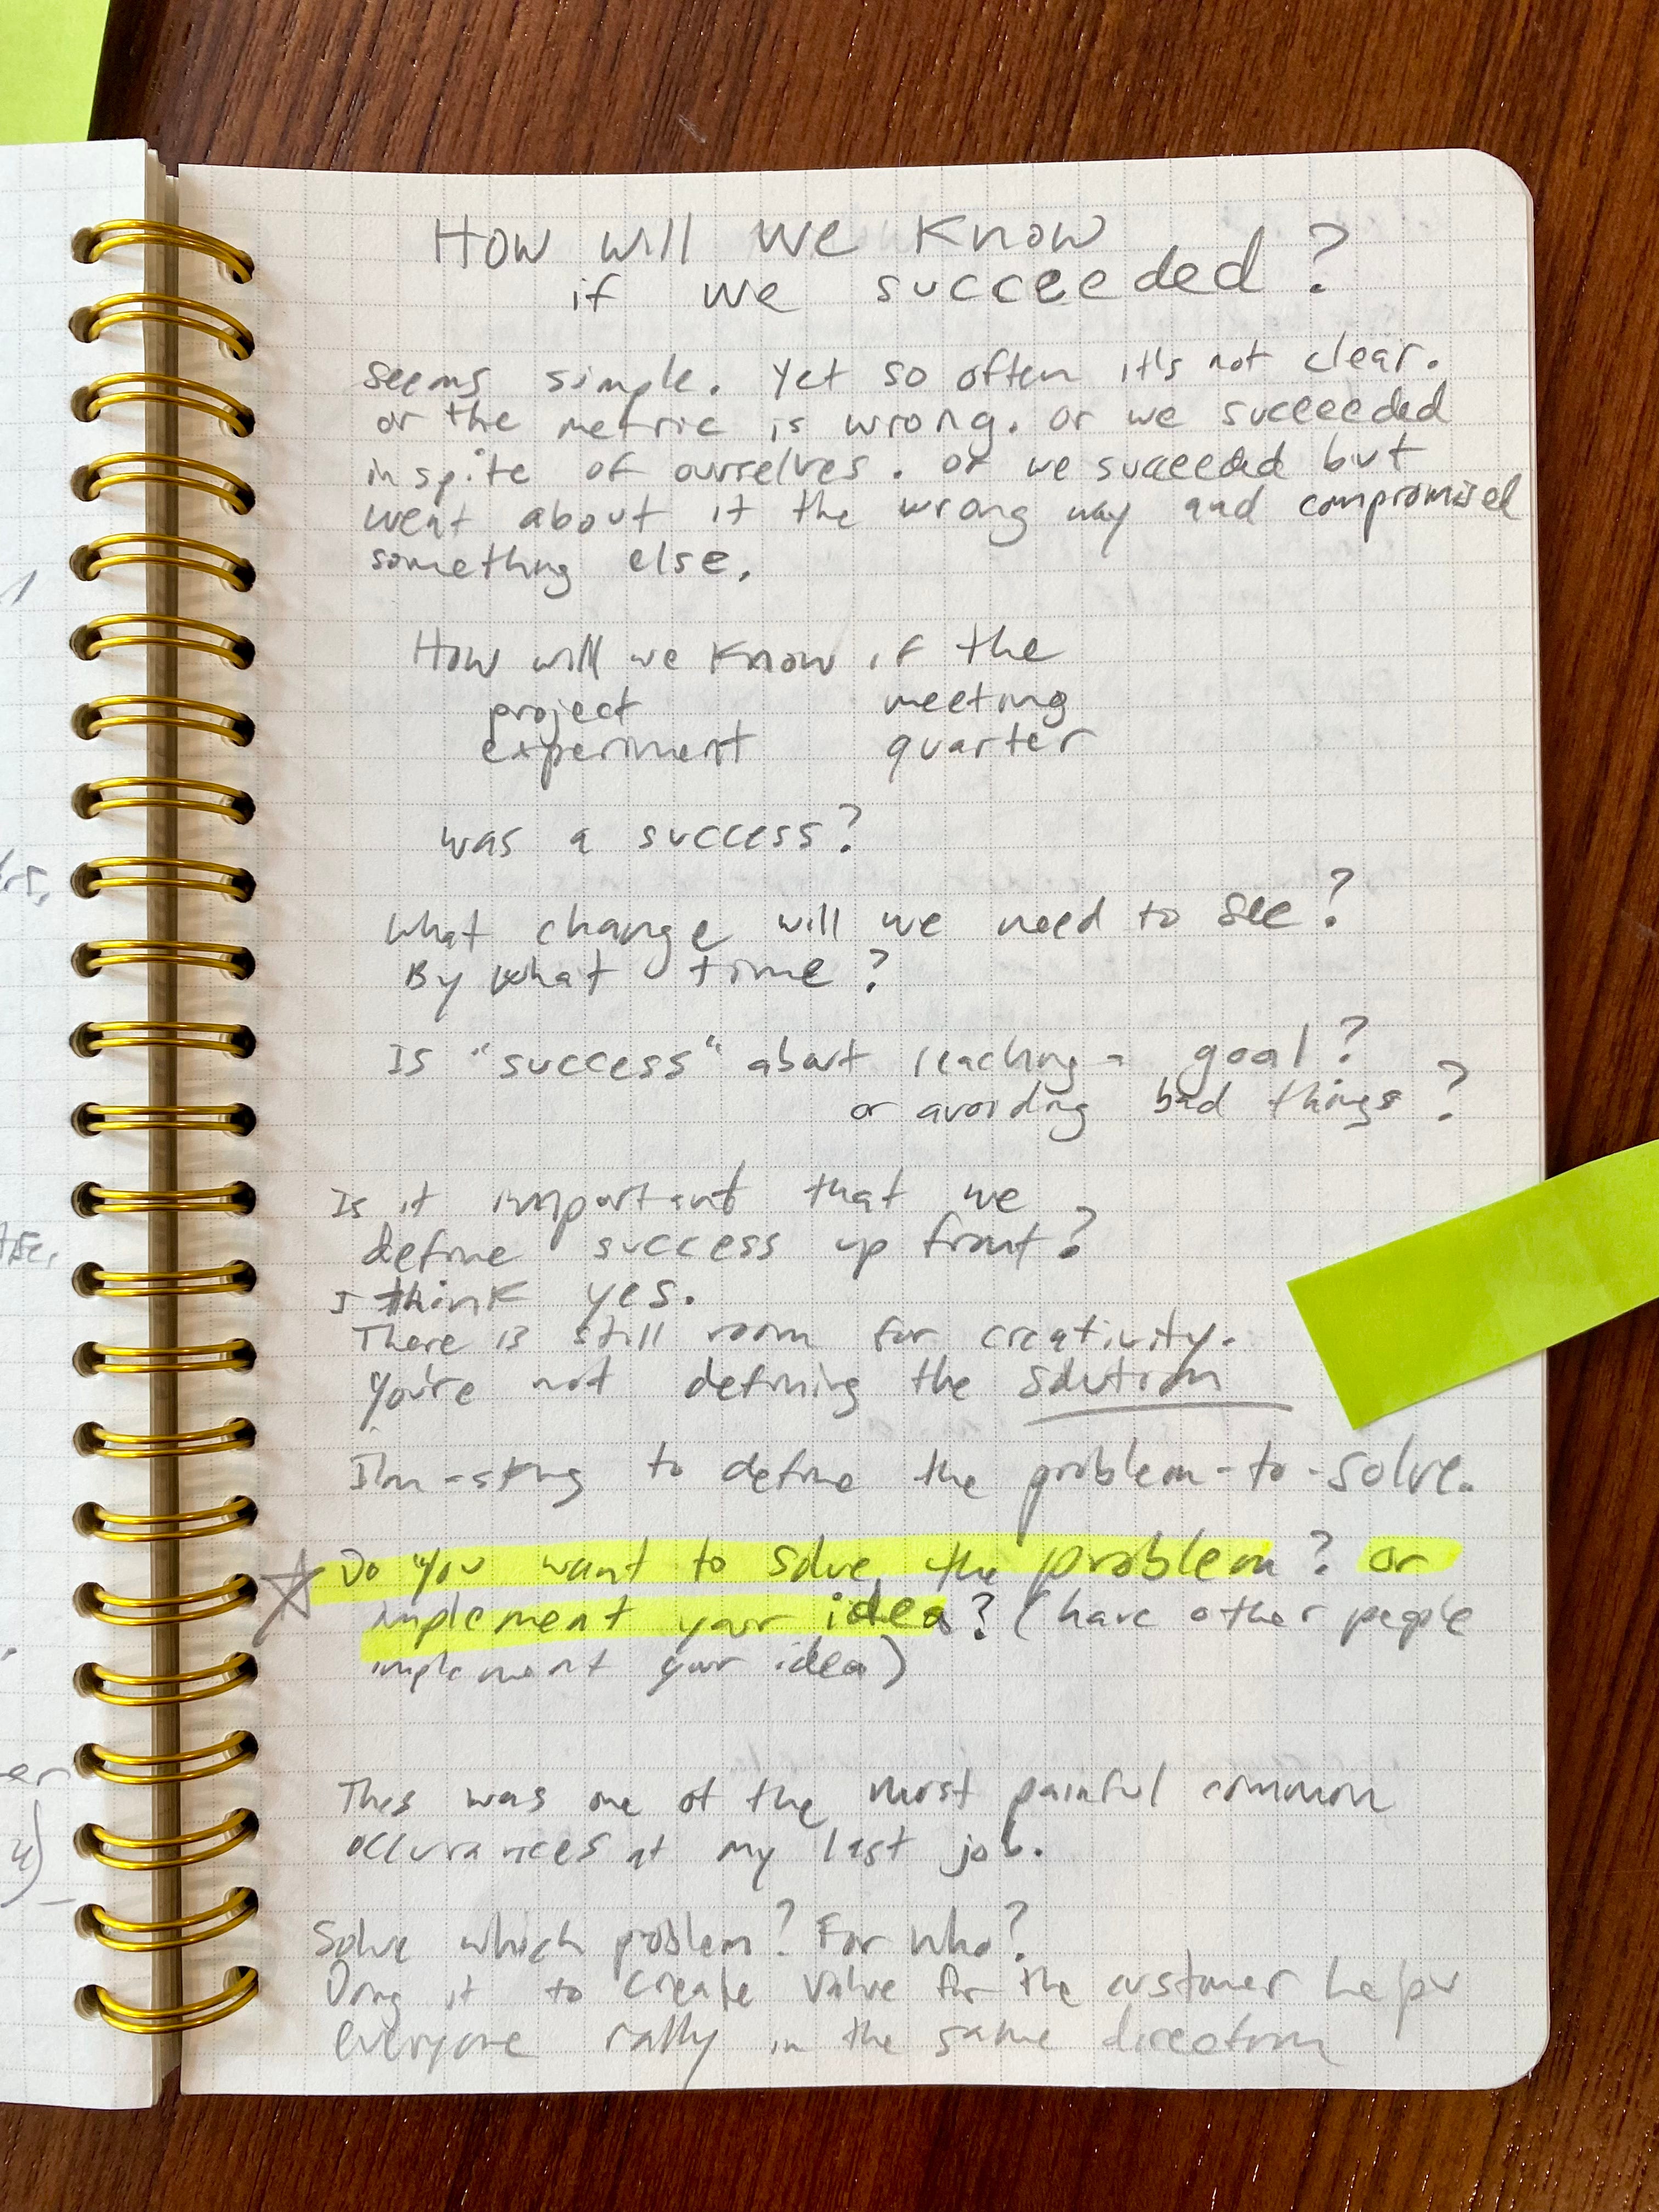 How will we know
if we succeeded?
seems simple. Yet so often it's not clear.
or the metric is wrong. or we succeeded
in spite of ourselves. or we succeeded but
went about it the wrong way and compromised
something else.
How will we know if the
project meeting
experiment quarter
was a success?
What change will we need to see?
By what time?
Is "success" about reaching a goal?
or avoiding bad things?
Is it important that we
define success up front?
I think yes.
There is still room for creativity.
You're not defining the solution
I'm asking to define the problem-to-solve.
Do you want to solve the problem? or
implement your idea? (have other people
implement your idea)
This was one of the most painful common
occurances at my last job.
Solve which problem? For who?
Doing it to create value for the customer helps
everyone rally in the same direction